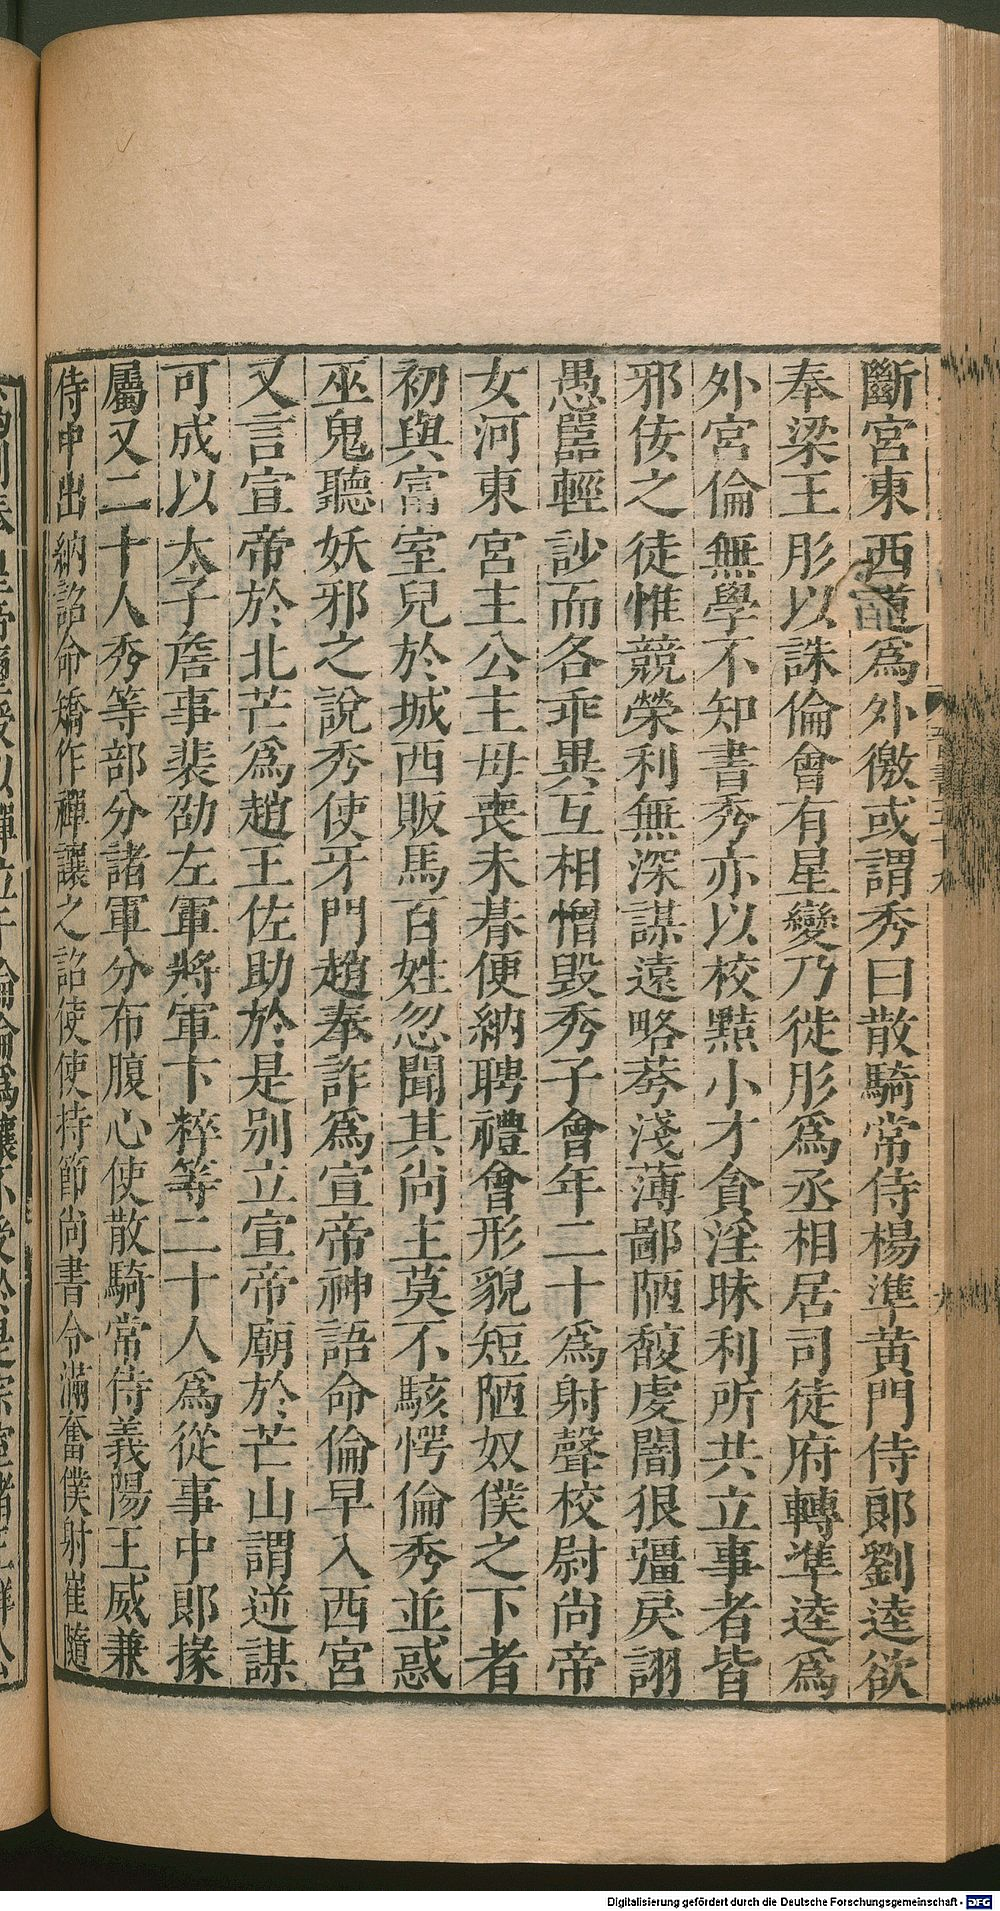 斷宮東西道爲外徼或謂秀曰散騎常侍楊準黃門侍郎劉逵欲
奉梁王肜以誅倫會有星變乃徙肜爲丞相居司徒府轉準逵爲
外官倫無學不知書秀亦以校黠小才貪淫昧利所共立事者皆
邪佞之徒惟競榮利無深謀遠略荂淺薄鄙陋馥虔闇狠彊戾詡
愚嚚輕訬而各乖異互相憎毀秀子會年二十爲射聲校尉尚帝
女河東宮主公主母喪未朞便納聘禮會形貌短陋奴僕之下者
初與富室兒於城西販馬百姓忽聞其尚主莫不駭愕倫秀並惑
巫鬼聽妖邪之說秀使牙門趙奉詐爲宣帝神語命倫早入西宮
又言宣帝於北芒爲趙王佐助於是别立宣帝廟於芒山謂逆謀
可成以太子詹事裴劭左軍將軍卞粹等二十人爲從事中郎掾
屬又二十人秀等部分諸軍分布腹心使散騎常侍義陽王威兼
侍中出納詔命矯作禪讓之詔使使持節尚書令滿奮僕射崔隨
Digitalisierung gefördert durch die Deutsche Forschungsgemeinschaft - DFG